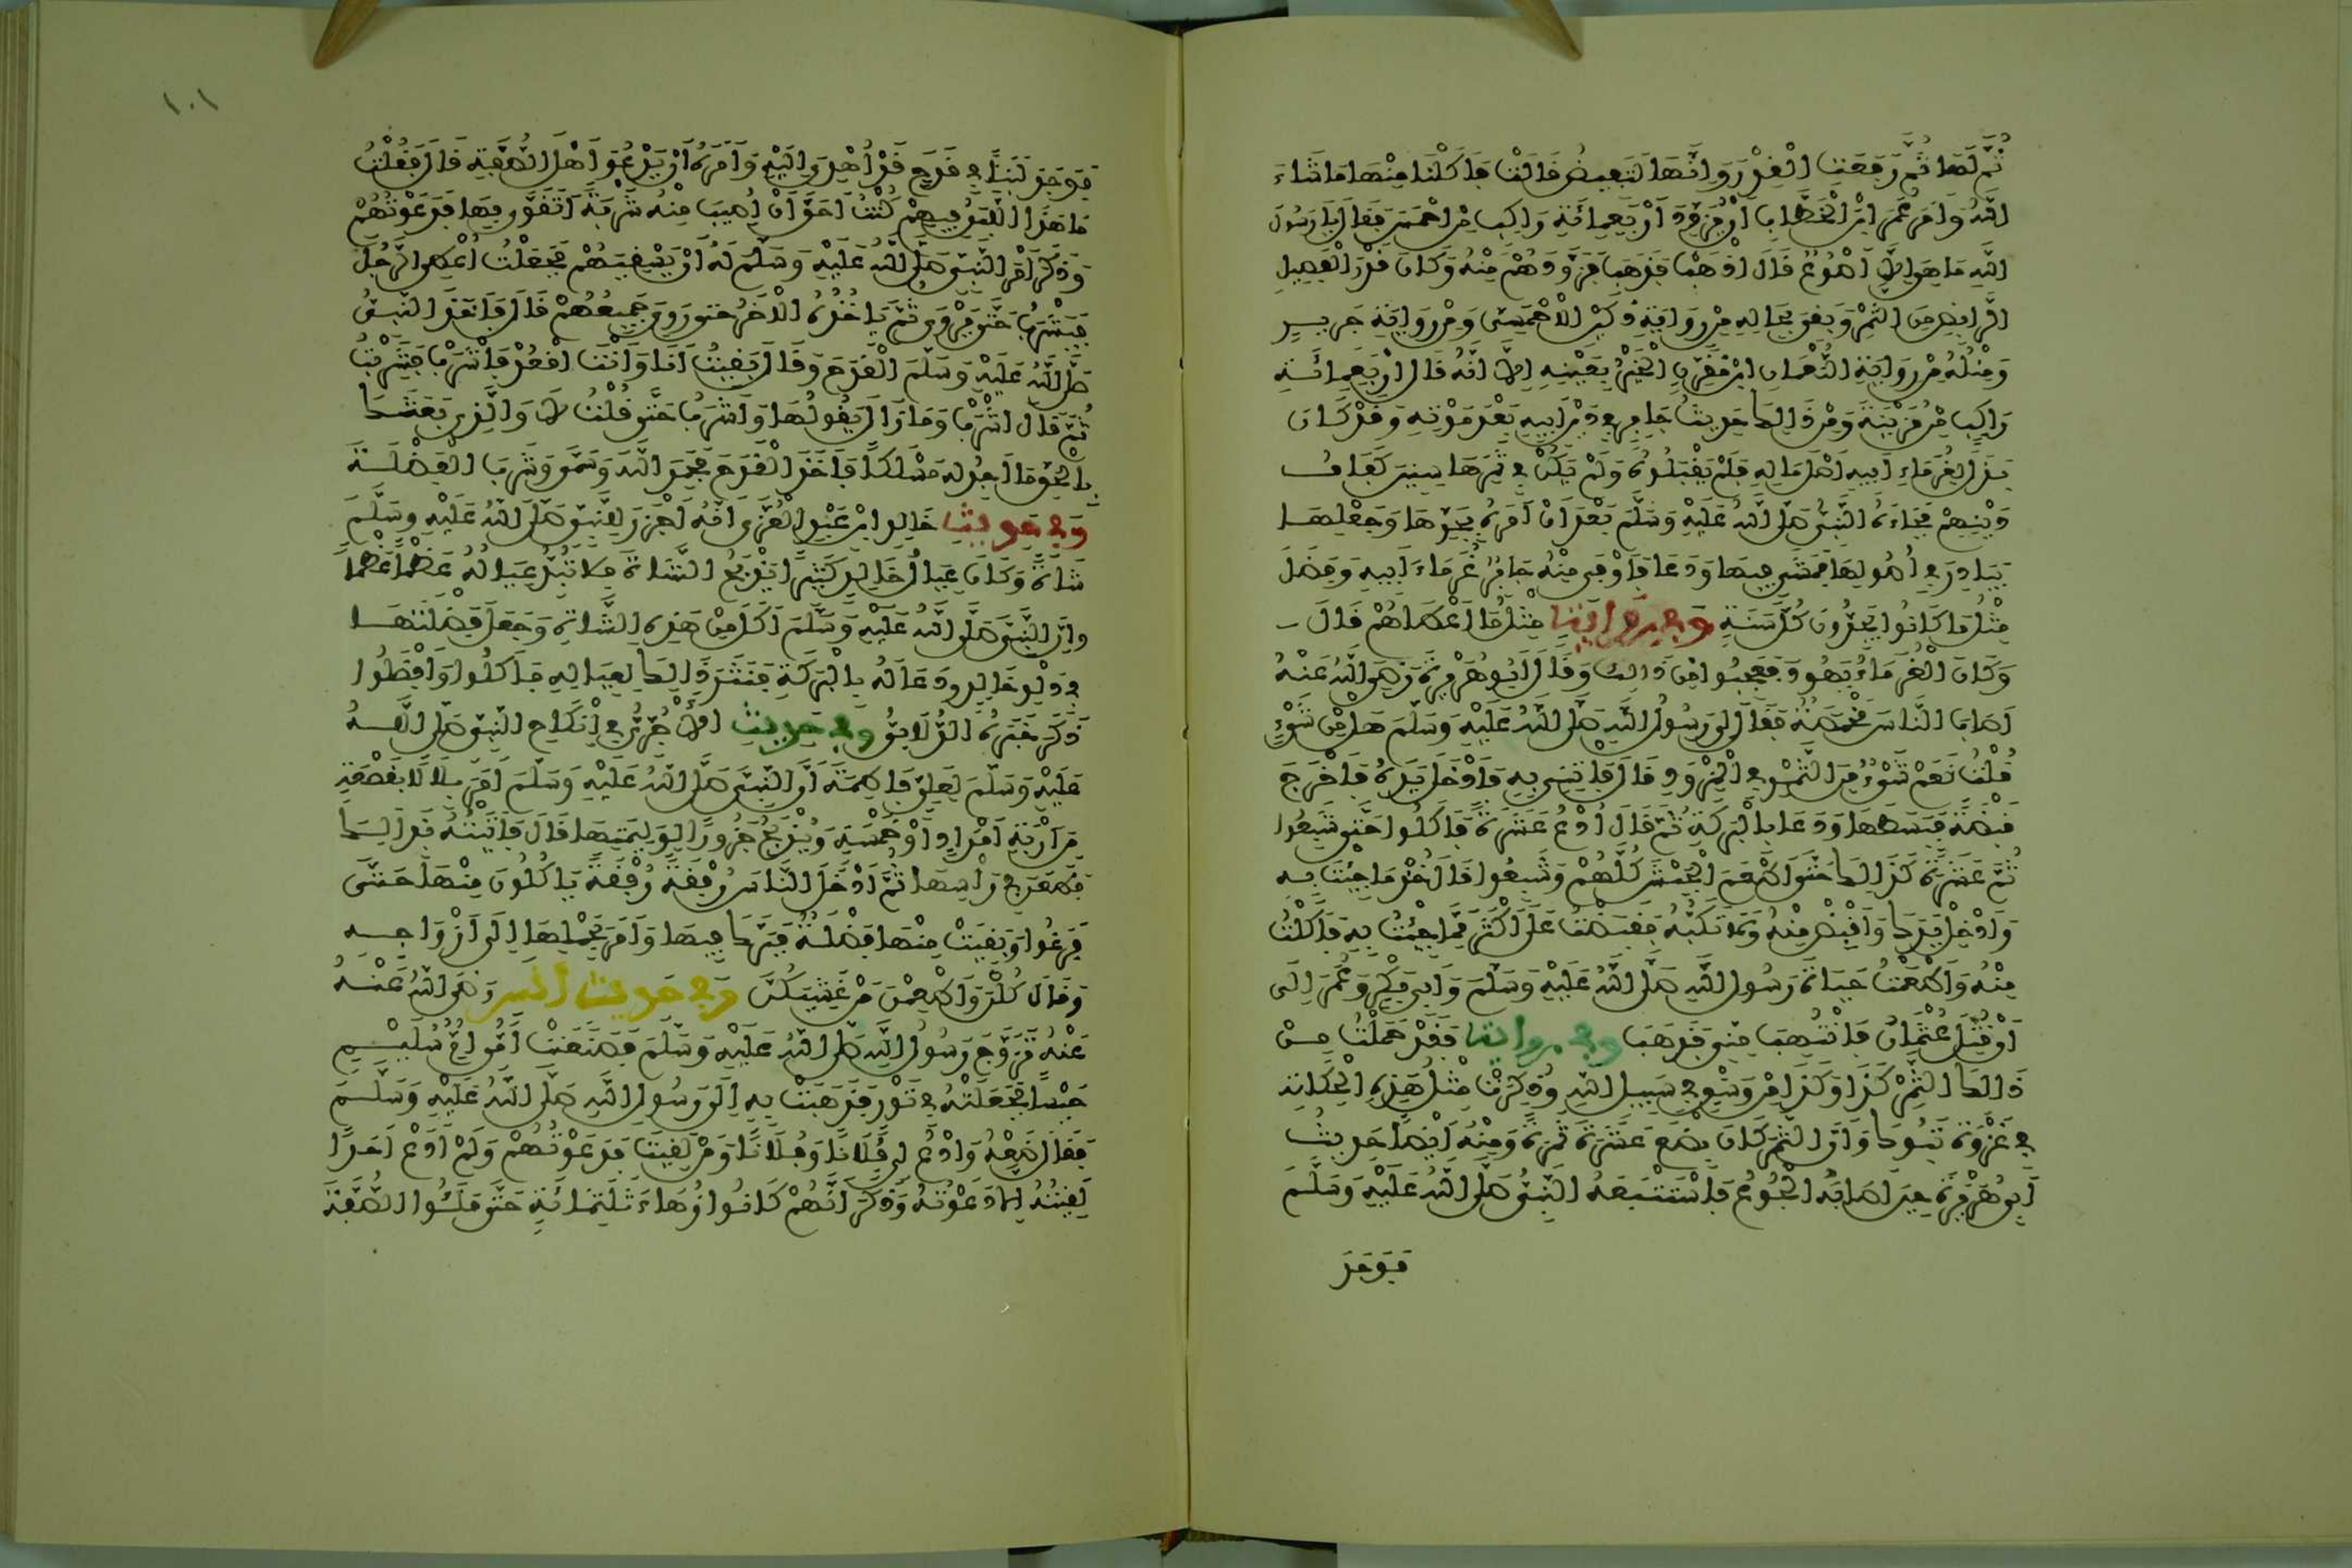 ثُمَّ لَهَا ثُمَّ رَفَعَتِ الْقِدْرَ وَإِنَّهَا لَتَفِيضُ قَالَتْ فَأَكَلْنَا مِنْهَا مَا شَاءَ
اللَّهُ وَأَمَرَ عُمَرَ ابْنَ الْخَطَّابِ أَنْ يُزَوِّدَ أَرْبَعَمِائَةِ رَاكِبٍ مِنْ أَحْمَسَ فَقَالَ يَا رَسُولَ
اللَّهِ مَا هِيَ إِلَّا أَصْوُعٌ قَالَ اذْهَبْ فَذَهَبَ فَزَوَّدَهُمْ مِنْهُ وَكَانَ قَدْرَ الْفَصِيلِ
الرَّابِضِ مِنَ التَّمْرِ وَبَقِيَ بِحَالِهِ مِنْ رِوَايَةِ دُكَيْنٍ الْأَحْمَسِيِّ وَمِنْ رِوَايَةِ جَرِيرٍ
وَمِثْلُهُ مِنْ رِوَايَةِ النُّعْمَانِ ابْنِ مُقَرِّنٍ الْخَبَرُ بِعَيْنِهِ إِلَّا أَنَّهُ قَالَ أَرْبَعِمِائَةِ
رَاكِبٍ مِنْ مُزَيْنَةَ وَمِنْ ذَالِكَ حَدِيثُ جَابِرٍ فِي دَيْنِ أَبِيهِ بَعْدَ مَوْتِهِ وَقَدْ كَانَ
بَذَلَ لِغُرَمَاءِ أَبِيهِ أَصْلَ مَالِهِ فَلَمْ يَقْبَلُوهُ وَلَمْ يَكُنْ فِي ثَمَرِهَا سِنِينَ كَفَافُ
دَيْنِهِمْ فَجَاءَهُ النَّبِيُّ صَلَّى اللَّهُ عَلَيْهِ وَسَلَّمَ بَعْدَ أَنْ أَمَرَهُ بِجَدِّهَا وَجَعْلِهَا
بَيَادِرَ فِي أُصُولِهَا فَمَشَى فِيهَا وَدَعَا فَأَوْفَى مِنْهُ جَابِرٌ غُرَمَاءَ أَبِيهِ وَفَضَلَ
مِثْلُ مَا كَانُوا يَجُدُّونَ كُلَّ سَنَةٍ وَفِي رِوَايَةٍ مِثْلُ مَا أَعْطَاهُمْ قَالَ
وَكَانَ الْغُرَمَاءُ يَهُودَ فَعَجِبُوا مِنْ ذَالِكَ وَقَالَ أَبُو هُرَيْرَةَ رَضِيَ اللَّهُ عَنْهُ
أَصَابَ النَّاسَ مَخْمَصَةٌ فَقَالَ لِي رَسُولُ اللَّهِ صَلَّى اللَّهُ عَلَيْهِ وَسَلَّمَ هَلْ مِنْ شَيْءٍ
قُلْتُ نَعَمْ شَيْءٌ مِنَ التَّمْرِ فِي الْمِزْوَدِ قَالَ فَاتِنِي بِهِ فَأَدْخَلَ يَدَهُ فَأَخْرَجَ
قَبْضَةً فَبَسَطَهَا وَدَعَا بِالْبَرَكَةِ ثُمَّ قَالَ ادْعُ عَشَرَةً فَأَكَلُوا حَتَّى شَبِعُوا
ثُمَّ عَشَرَةً كَذَالِكَ حَتَّى أَطْعَمَ الْجَيْشَ كُلَّهُمْ وَشَبِعُوا قَالَ خُذْ مَا جِئْتَ بِهِ
وَأَدْخِلْ يَدَكَ وَاقْبِضْ مِنْهُ وَلَا تَكُبَّهُ فَقَبَضْتُ عَلَى أَكْثَرَ مِمَّا جِئْتُ بِهِ فَأَكَلْتُ
مِنْهُ وَأَطْعَمْتُ حَيَاةَ رَسُولِ اللَّهِ صَلَّى اللَّهُ عَلَيْهِ وَسَلَّمَ وَأَبِي بَكْرٍ وَعُمَرَ إِلَى
أَنْ قُتِلَ عُثْمَانُ فَانْتُهِبَ مِنِّي فَذَهَبَ وَفِي رِوَايَةٍ فَقَدْ حَمَلْتُ مِنْ
ذَالِكَ التَّمْرِ كَذَا وَكَذَا مِنْ وَسْقٍ فِي سَبِيلِ اللَّهِ وَذُكِرَتْ مِثْلُ هَذِهِ الْحِكَايَةِ
فِي غَزْوَةِ تَبُوكَ وَأَنَّ التَّمْرَ كَانَ بِضْعَ عَشْرَةَ تَمْرَةً وَمِنْهُ أَيْضًا حَدِيثُ
أَبِي هُرَيْرَةَ حِينَ أَصَابَهُ الْجُوعُ فَاسْتَتْبَعَهُ النَّبِيُّ صَلَّى اللَّهُ عَلَيْهِ وَسَلَّمَ
فَوَجَدَ
١٠١
فَوَجَدَ لَبَنًا فِي قَدَحٍ قَدْ أُهْدِيَ إِلَيْهِ وَأَمَرَهُ أَنْ يَدْعُوَ أَهْلَ الصُّفَّةِ قَالَ فَقُلْتُ
مَا هَذَا اللَّبَنُ فِيهِمْ كُنْتُ أَحَقَّ أَنْ أُصِيبَ مِنْهُ شَرْبَةً أَتَقَوَّى بِهَا فَدَعَوْتُهُمْ
وَذَكَرَ أَمْرَ النَّبِيِّ صَلَّى اللَّهُ عَلَيْهِ وَسَلَّمَ لَهُ أَنْ يَسْقِيَهُمْ فَجَعَلْتُ أُعْطِي الرَّجُلَ
فَيَشْرَبُ حَتَّى يَرْوَى ثُمَّ يَأْخُذُهُ الْآخَرُ حَتَّى رَوِيَ جَمِيعُهُمْ قَالَ فَأَخَذَ النَّبِيُّ
صَلَّى اللَّهُ عَلَيْهِ وَسَلَّمَ الْقَدَحَ وَقَالَ بَقِيتُ أَنَا وَأَنْتَ اقْعُدْ فَاشْرَبْ فَشَرِبْتُ
ثُمَّ قَالَ اشْرَبْ وَمَا زَالَ يَقُولُهَا وَأَشْرَبُ حَتَّى قُلْتُ لَا وَالَّذِي بَعَثَكَ
بِالْحَقِّ مَا أَجِدُ لَهُ مَسْلَكًا فَأَخَذَ الْقَدَحَ فَحَمِدَ اللَّهَ وَسَمَّى وَشَرِبَ الْفَضْلَةَ
وَفِي حَدِيثِ خَالِدِ ابْنِ عَبْدِ الْعُزَّى أَنَّهُ أَجْزَرَ النَّبِيَّ صَلَّى اللَّهُ عَلَيْهِ وَسَلَّمَ
شَاةً وَكَانَ عِيَالُ خَالِدٍ كَثِيرًا يَذْبَحُ الشَّاةَ فَلَا تُبِدُّ عِيَالَهُ عَظْمًا عَظْمًا
وَإِنَّ النَّبِيَّ صَلَّى اللَّهُ عَلَيْهِ وَسَلَّمَ أَكَلَ مِنْ هَذِهِ الشَّاةِ وَجَعَلَ فَضْلَتَهَا
فِي دَلْوِ خَالِدٍ وَدَعَا لَهُ بِالْبَرَكَةِ فَنَثَرَ ذَالِكَ لِعِيَالِهِ فَأَكَلُوا وَأَفْضَلُوا
ذَكَرَ خَبَرَهُ الدُّولَابِيُّ وَفِي حَدِيثِ الْآجُرِّيِّ فِي إِنْكَاحِ النَّبِيِّ صَلَّى اللَّهُ
عَلَيْهِ وَسَلَّمَ لِعَلِيٍّ فَاطِمَةَ أَنَّ النَّبِيَّ صَلَّى اللَّهُ عَلَيْهِ وَسَلَّمَ أَمَرَ بِلَالًا بِقَصْعَةٍ
مِنْ أَرْبَعَةِ أَمْدَادٍ أَوْ خَمْسَةٍ وَيَذْبَحُ جَزُورًا لِوَلِيمَتِهَا قَالَ فَأَتَيْتُهُ بِذَالِكَ
فَطَعَنَ فِي رَأْسِهَا ثُمَّ أَدْخَلَ النَّاسَ رُفْقَةً رُفْقَةً يَأْكُلُونَ مِنْهَا حَتَّى
فَرَغُوا وَبَقِيَتْ مِنْهَا فَضْلَةٌ فَبَرَّكَ فِيهَا وَأَمَرَ بِحَمْلِهَا إِلَى أَزْوَاجِهِ
وَقَالَ كُلْنَ وَأَطْعِمْنَ مَنْ غَشِيَكُنَّ وَفِي حَدِيثِ أَنَسٍ رَضِيَ اللَّهُ عَنْهُ
عَنْهُ تَزَوَّجَ رَسُولُ اللَّهِ صَلَّى اللَّهُ عَلَيْهِ وَسَلَّمَ فَصَنَعَتْ أُمِّي أُمُّ سُلَيْمٍ
حَيْسًا فَجَعَلَتْهُ فِي تَوْرٍ فَذَهَبَتْ بِهِ إِلَى رَسُولِ اللَّهِ صَلَّى اللَّهُ عَلَيْهِ وَسَلَّمَ
فَقَالَ ضَعْهُ وَادْعُ لِي فُلَانًا وَفُلَانًا وَمَنْ لَقِيتَ فَدَعَوْتُهُمْ وَلَمْ أَدَعْ أَحَدًا
لَقِيتُهُ إِلَّا دَعَوْتُهُ وَذَكَرَ أَنَّهُمْ كَانُوا زُهَاءَ ثَلَاثِمِائَةٍ حَتَّى مَلَئُوا الصُّفَّةَ